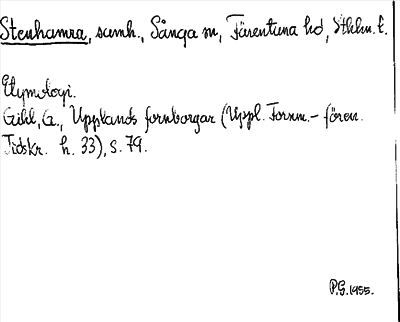 Stenhamra, samh., Sånga sn, Färentuna hd, Sthlm. l.
Etymologi.
Gihl, G., Upplands fornborgar (Uppl. Fornm.- fören.
Tidskr. h. 33), s. 79.
P.G. 1955.